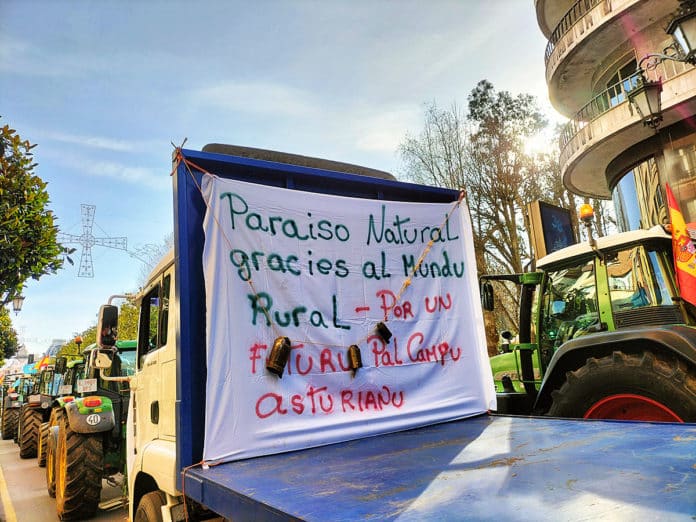 Paraiso Natural
gracies al Mundu
Rural - Por un
Futuru Pal Campu
asturianu
40